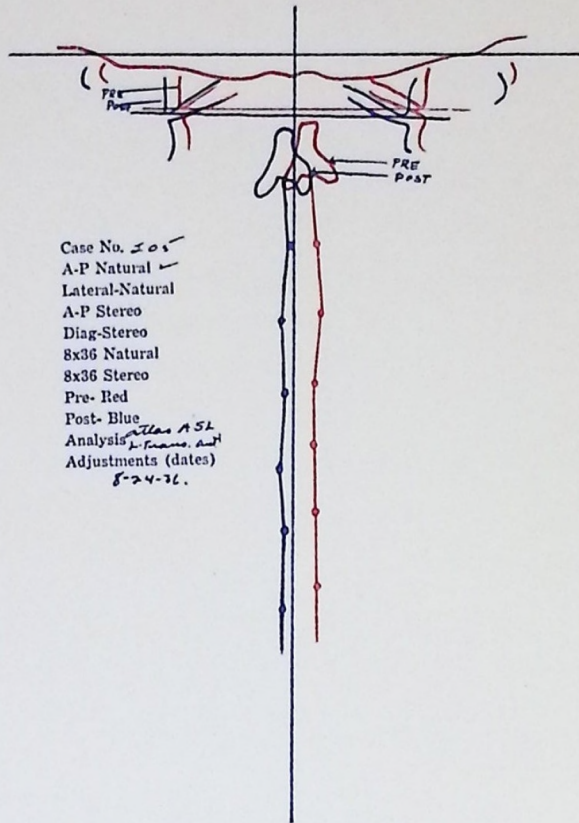 PRE
POST
PRE
POST
Case No. 105
A-P Natural ✓
Lateral-Natural
A-P Stereo
Diag-Stereo
8x36 Natural
8x36 Stereo
Pre- Red
Post- Blue
Analysis atlas ASL
L. Trans. ant
Adjustments (dates)
8-24-36.